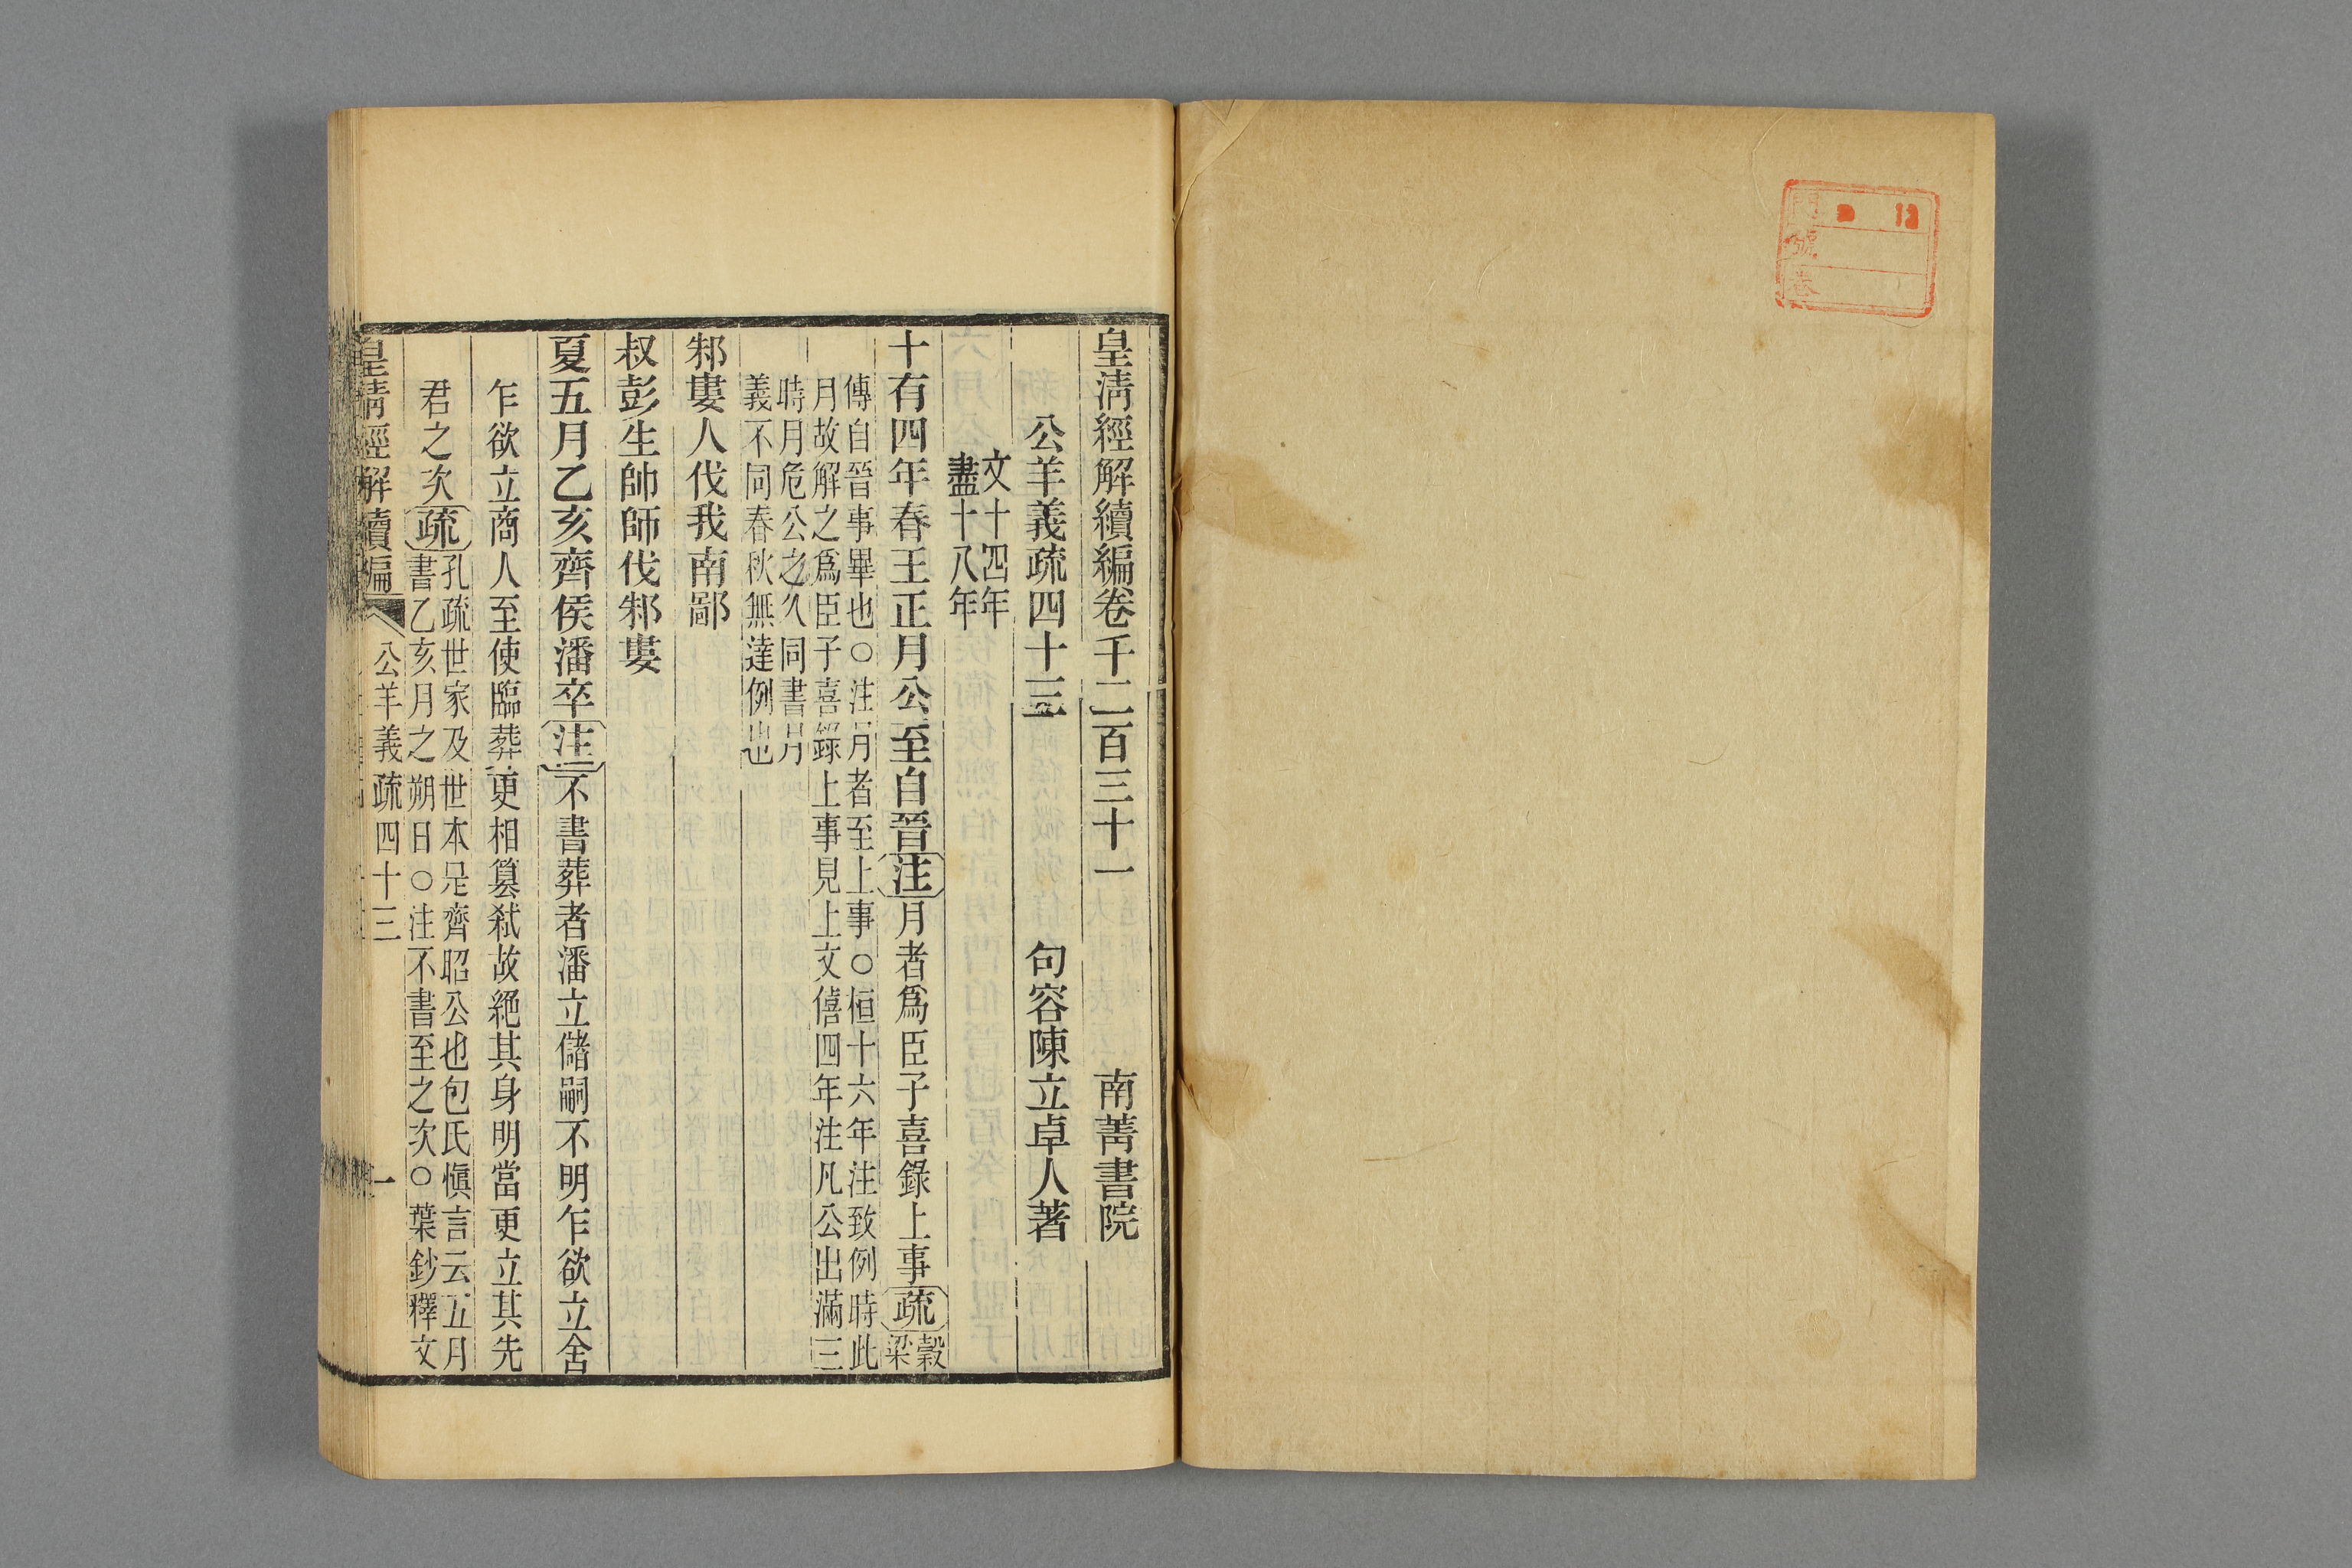 皇清經解續編卷千二百三十一 南菁書院
公羊義疏四十三 句容陳立卓人著
文十四年
盡十八年
十有四年春王正月公至自晉注月者爲臣子喜錄上事疏穀
梁
傳自晉事畢也○注月者至上事○恒十六年注致例時此
月故解之爲臣子喜錄上事見上文僖四年注凡公出滿三
時月危公之久同書月
義不同春秋無達例也
邾婁人伐我南鄙
叔彭生帥師伐邾婁
夏五月乙亥齊侯潘卒注不書葬者潘立儲嗣不明乍欲立舍
乍欲立商人至使臨葬更相篡弒故絕其身明當更立其先
君之次疏孔疏世家及世本是齊昭公也包氏愼言云五月
書乙亥月之朔日○注不書至之次○葉鈔釋文
皇淸經解續編 公羊義疏四十三 一
門
號
卷